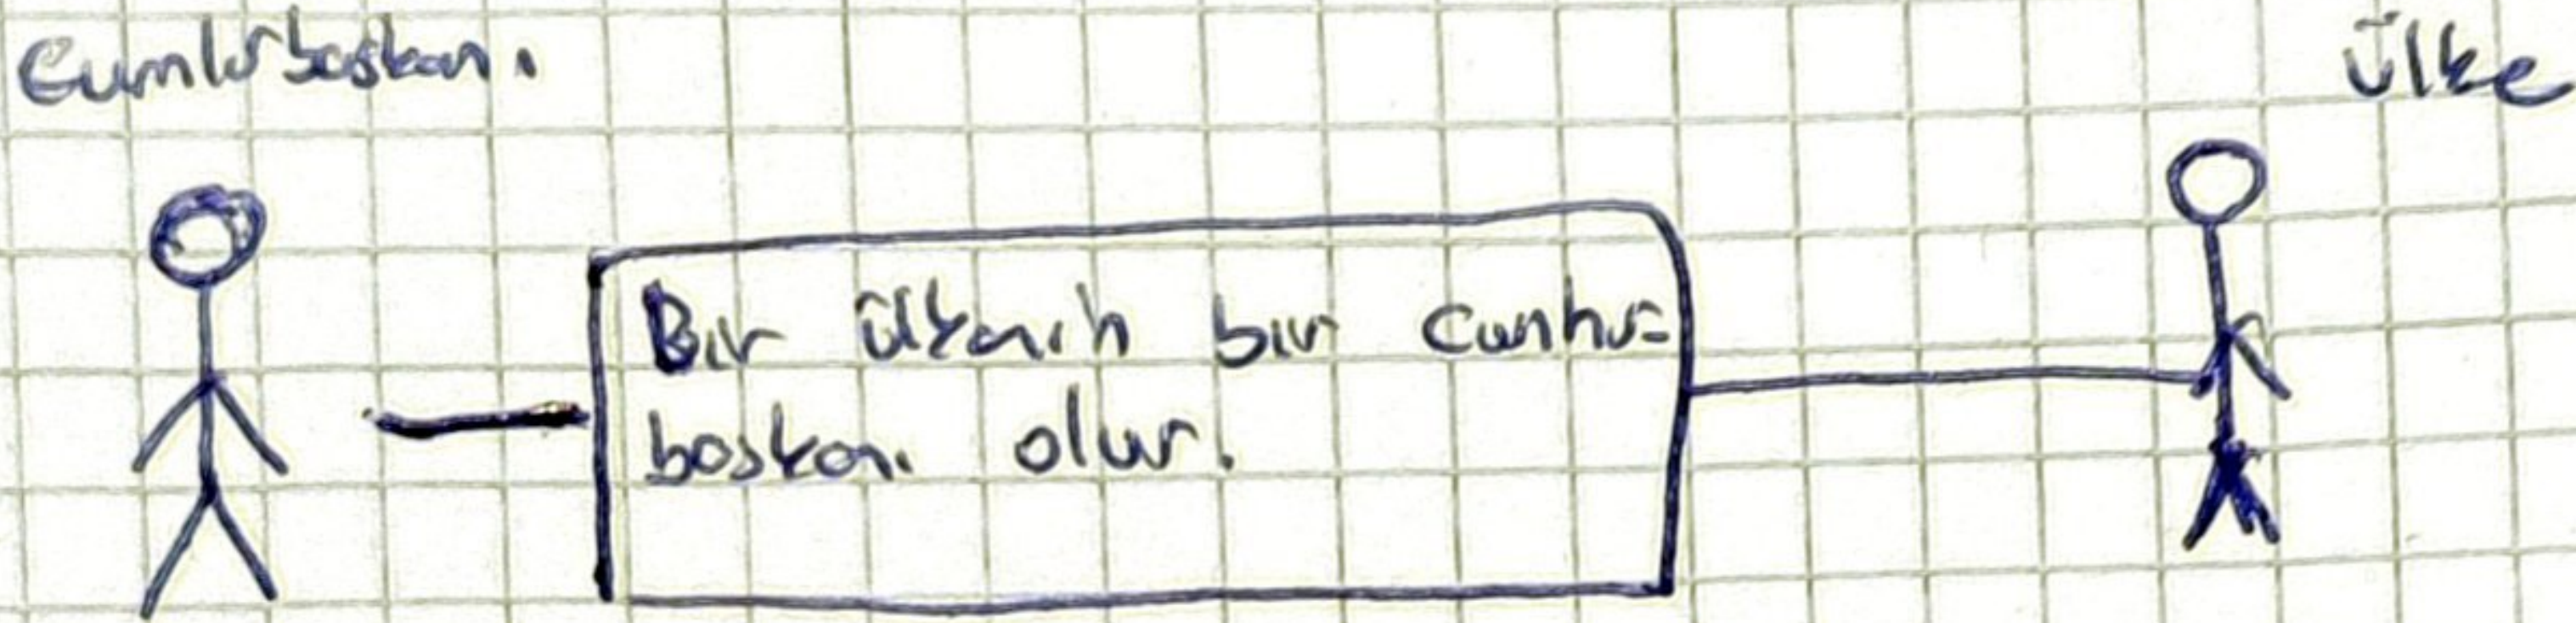 Cumhurbaşkanı
Ülke
Bir ülkenin bir Cumhur-
başkanı olur.